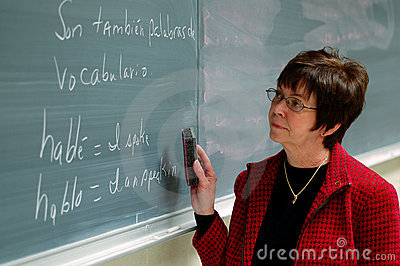 Son también palabras de
vocabulario
hablé = I spoke
hablo = I am speaking
dreamstime